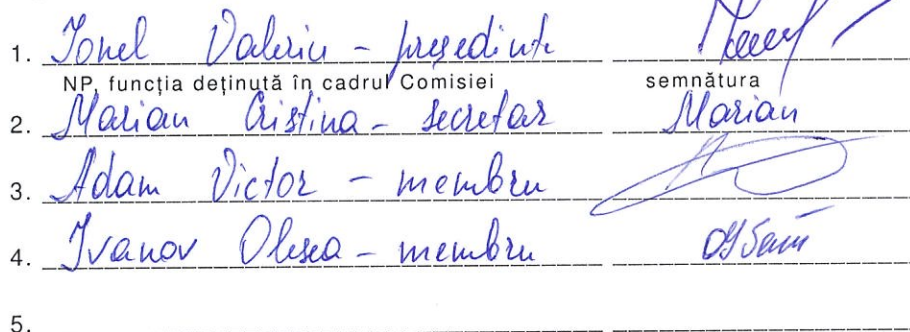 1. Ionel Valeriu - președinte
NP, funcția deținută în cadrul Comisiei semnătura
2. Marian Cristina - secretar Marian
3. Adam Victor - membru
4. Ivanov Olesea - membru
5.